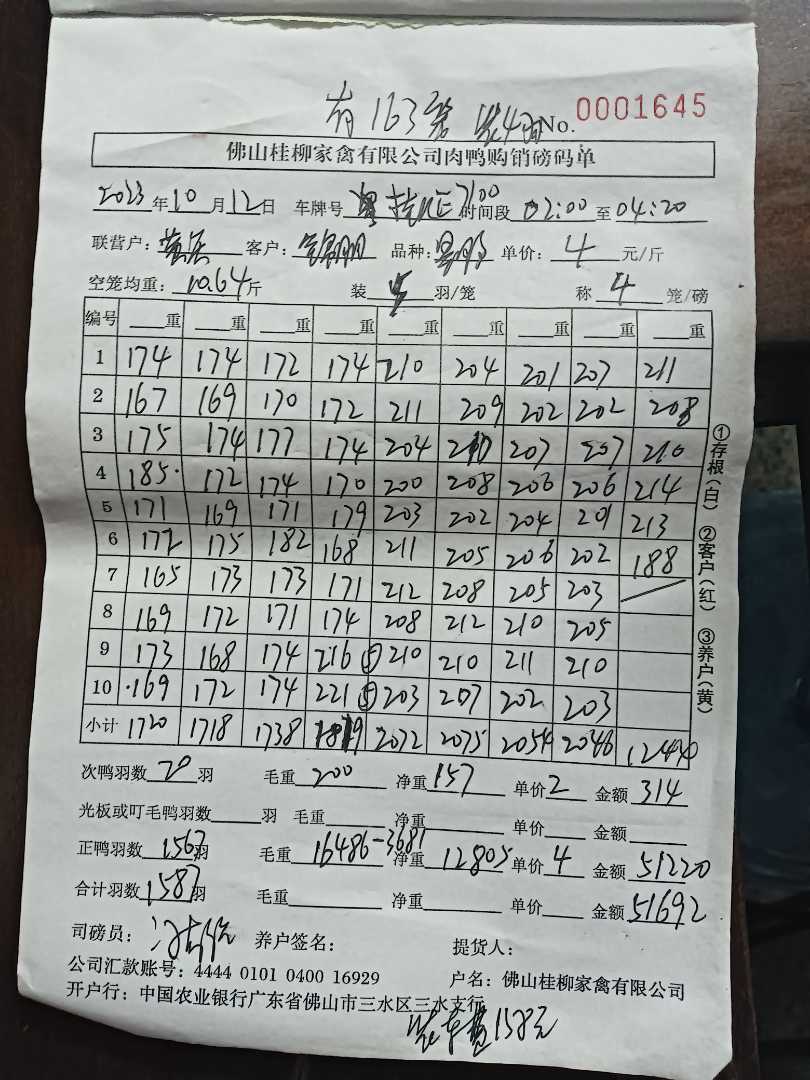 有163笼 装4羽 No. 0001645
佛山桂柳家禽有限公司肉鸭购销磅码单
2023年10月12日 车牌号 7100 时间段 02:00 至 04:20
联营户： 客户： 品种： 单价：4 元/斤
空笼均重：10.64斤 装 羽/笼 称 4 笼/磅
编号 重 重 重 重 重 重 重 重 重
1 174 174 172 174 210 204 201 207 211
2 167 169 170 172 211 209 202 202 208
3 175 174 177 174 204 210 207 207 210
4 185 172 174 170 200 208 206 206 214
5 171 169 171 179 203 202 204 201 213
6 172 175 182 168 211 205 206 202 188
7 165 173 173 171 212 208 205 203
8 169 172 171 174 208 212 210 205
9 173 168 174 216 ⑤ 210 210 211 210
10 169 172 174 221 ⑤ 203 207 202 203
小计 1720 1718 1738 1819 2072 2075 2054 2046 1244
次鸭羽数 20 羽 毛重 200 净重 157 单价 2 金额 314
光板或叮毛鸭羽数 羽 毛重 净重 单价 金额
正鸭羽数 1567 羽 毛重 16486-3681 净重 12805 单价 4 金额 51220
合计羽数 1587 羽 毛重 净重 单价 金额 51692
司磅员： 养户签名： 提货人：
公司汇款账号：4444 0101 0400 16929 户名：佛山桂柳家禽有限公司
开户行：中国农业银行广东省佛山市三水区三水支行
装车费158元
①存根（白） ②客户（红） ③养户（黄）